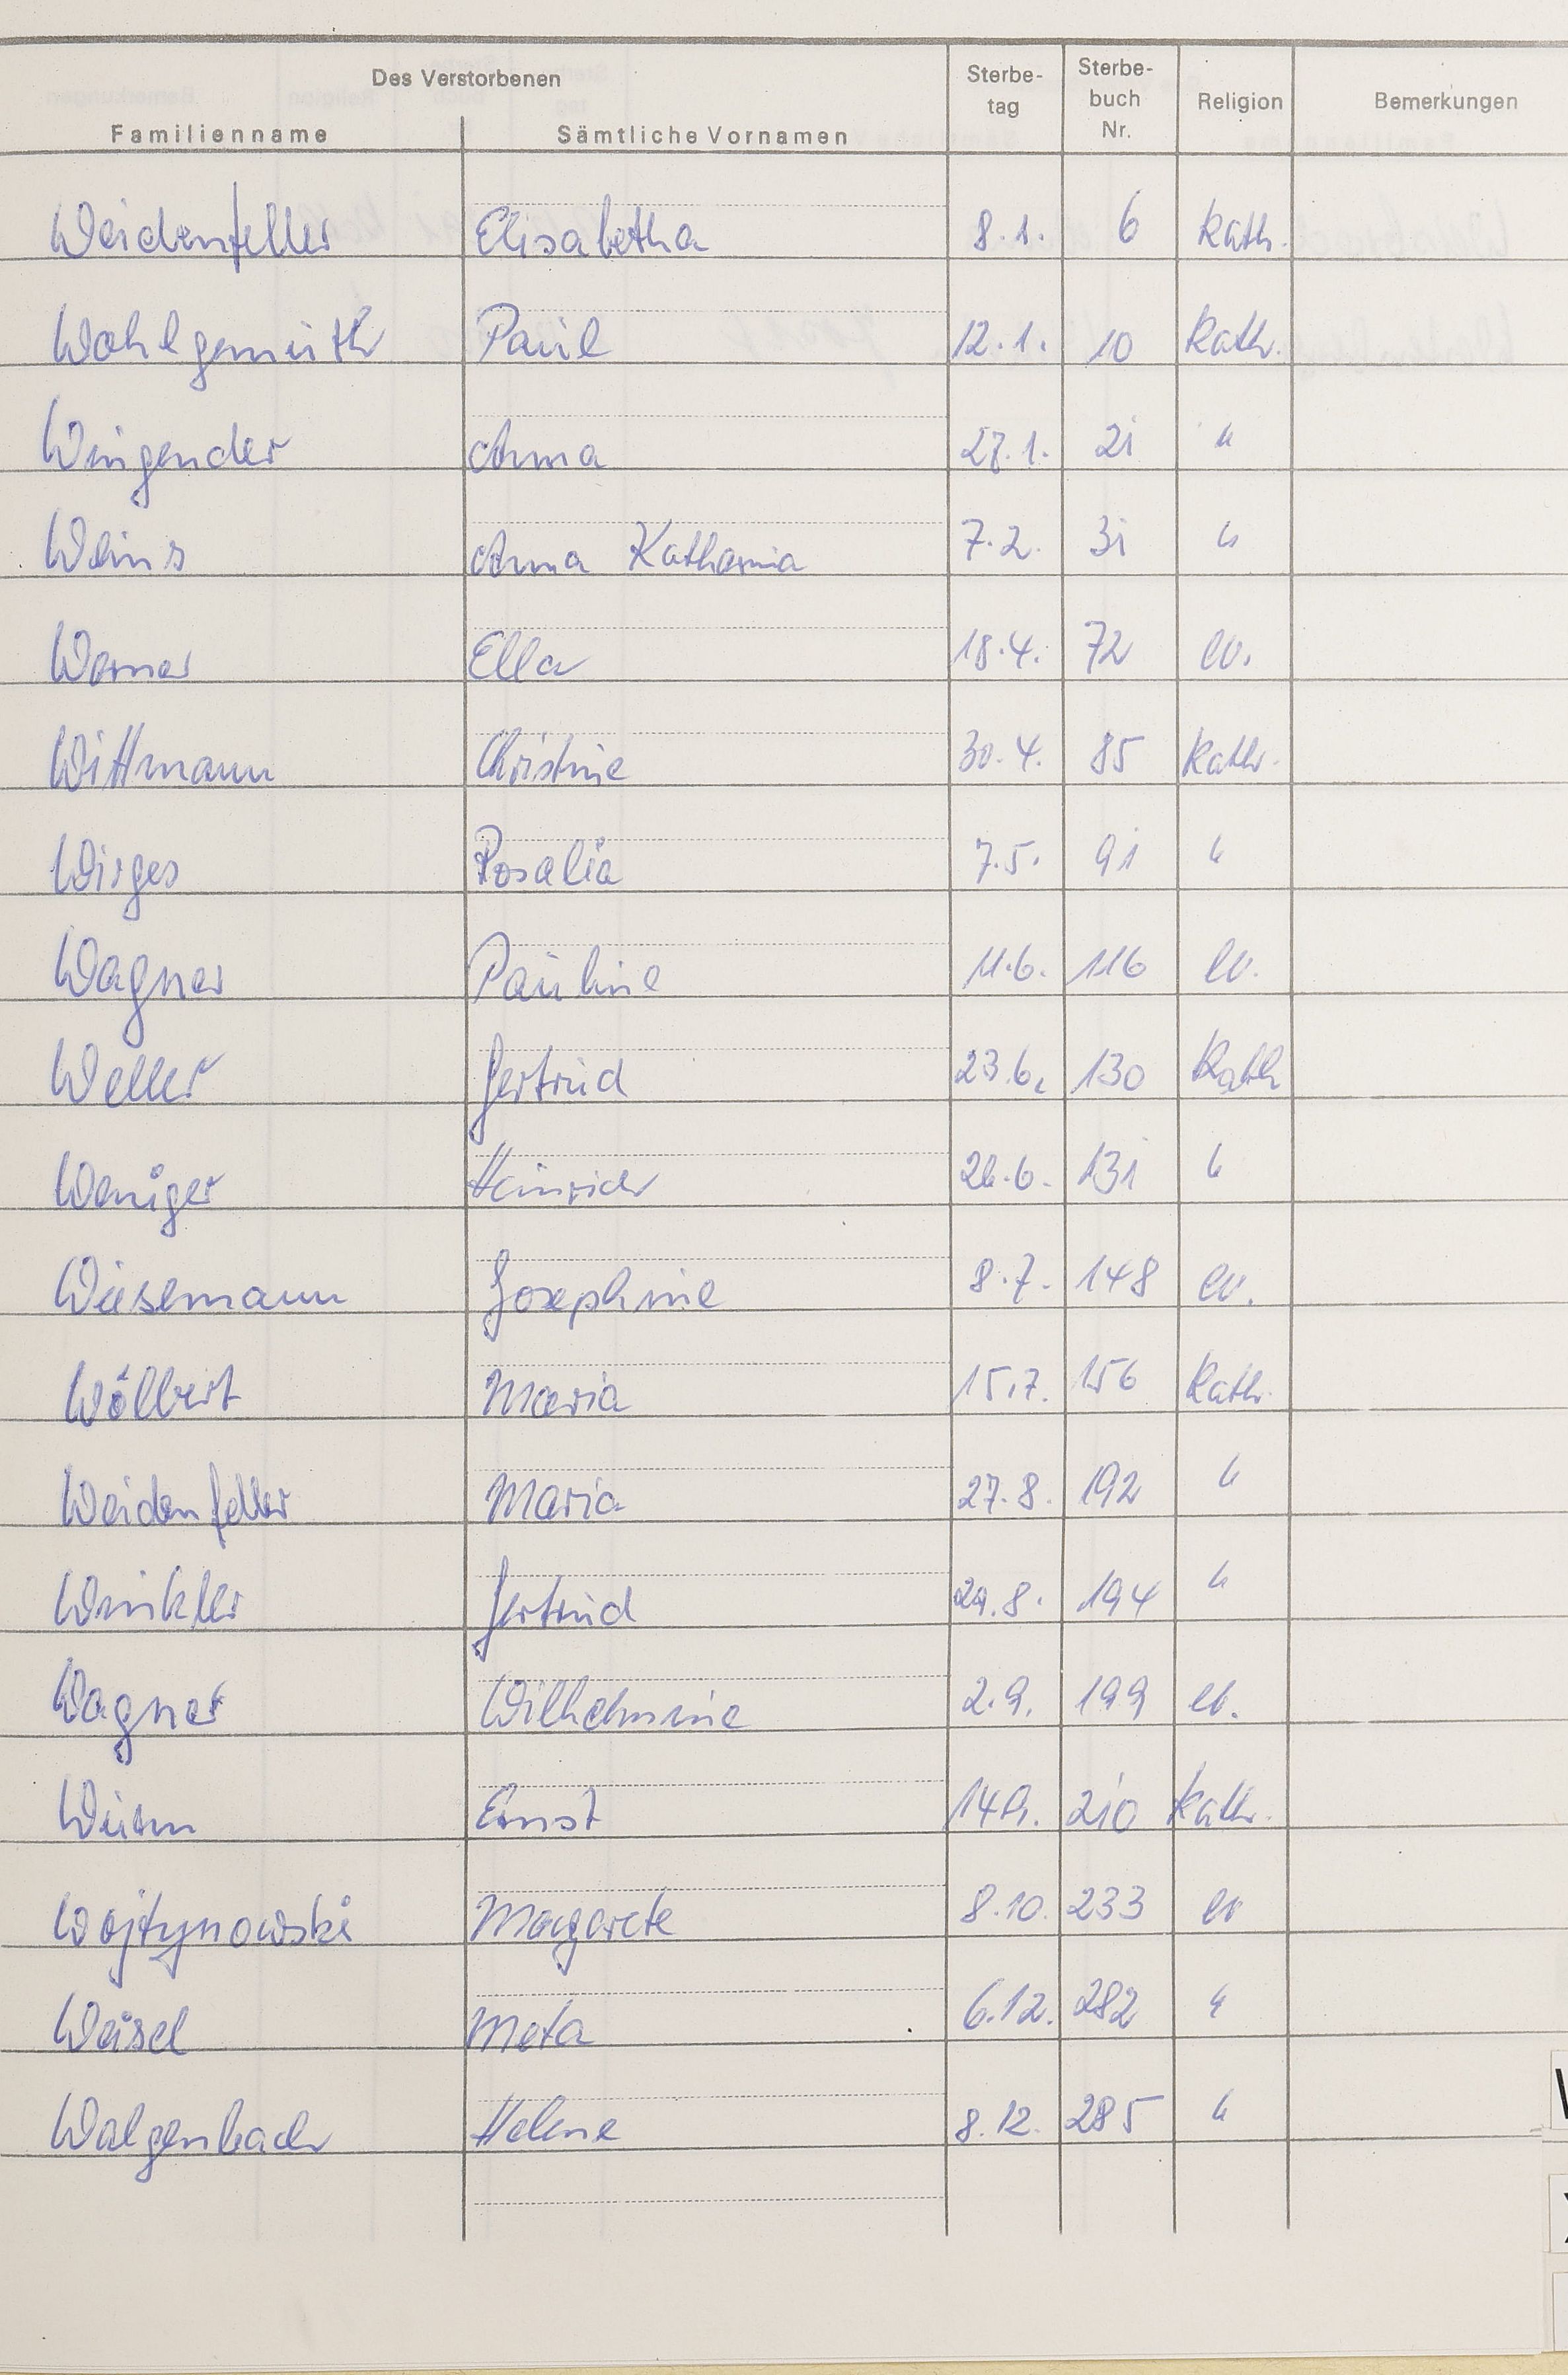 Des Verstorbenen
Familienname Sämtliche Vornamen Sterbe-tag Sterbe-buch Nr. Religion Bemerkungen
Weidenfeller Elisabetha 8.1. 6 kath.
Wohlgemuth Paul 12.1. 10 kath.
Wingender Anna 27.1. 21 "
Weins Anna Katharina 7.2. 31 "
Werner Ella 18.4. 72 ev.
Wittmann Christine 30.4. 85 kath.
Wirges Rosalia 7.5. 91 "
Wagner Pauline 11.6. 116 ev.
Weller Gertrud 23.6. 130 kath
Weniger Heinrich 24.6. 131 "
Wiesemann Josephine 8.7. 148 ev.
Wölbert Maria 15.7. 156 kath.
Weidenfeller Maria 27.8. 192 "
Winkler Gertrud 29.8. 194 "
Wagner Wilhelmine 2.9. 199 ev.
Wurm Ernst 14.9. 210 kath.
Wojtynowski Margarete 8.10. 233 ev
Weisel Meta 6.12. 282 "
Walgenbach Helene 8.12. 285 "